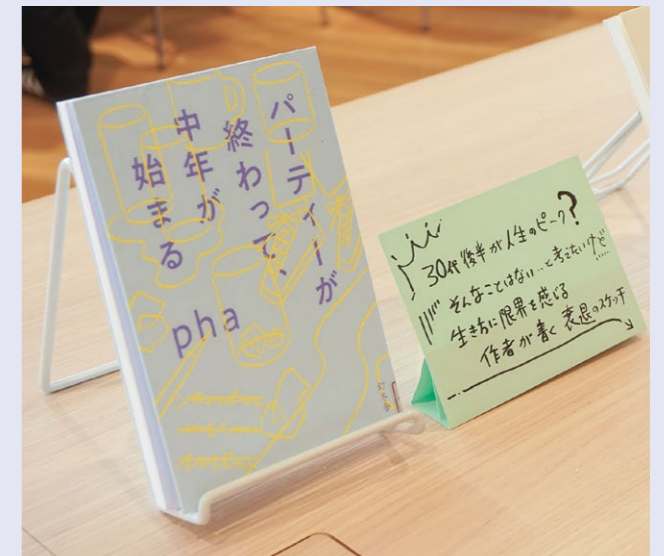 パーティーが
終わって、
中年が
始まる
pha
幻冬舎
30代後半が人生のピーク?
そんなことはない…と考えたいけど…
生き方に限界を感じる
作者が書く衰退のスケッチ